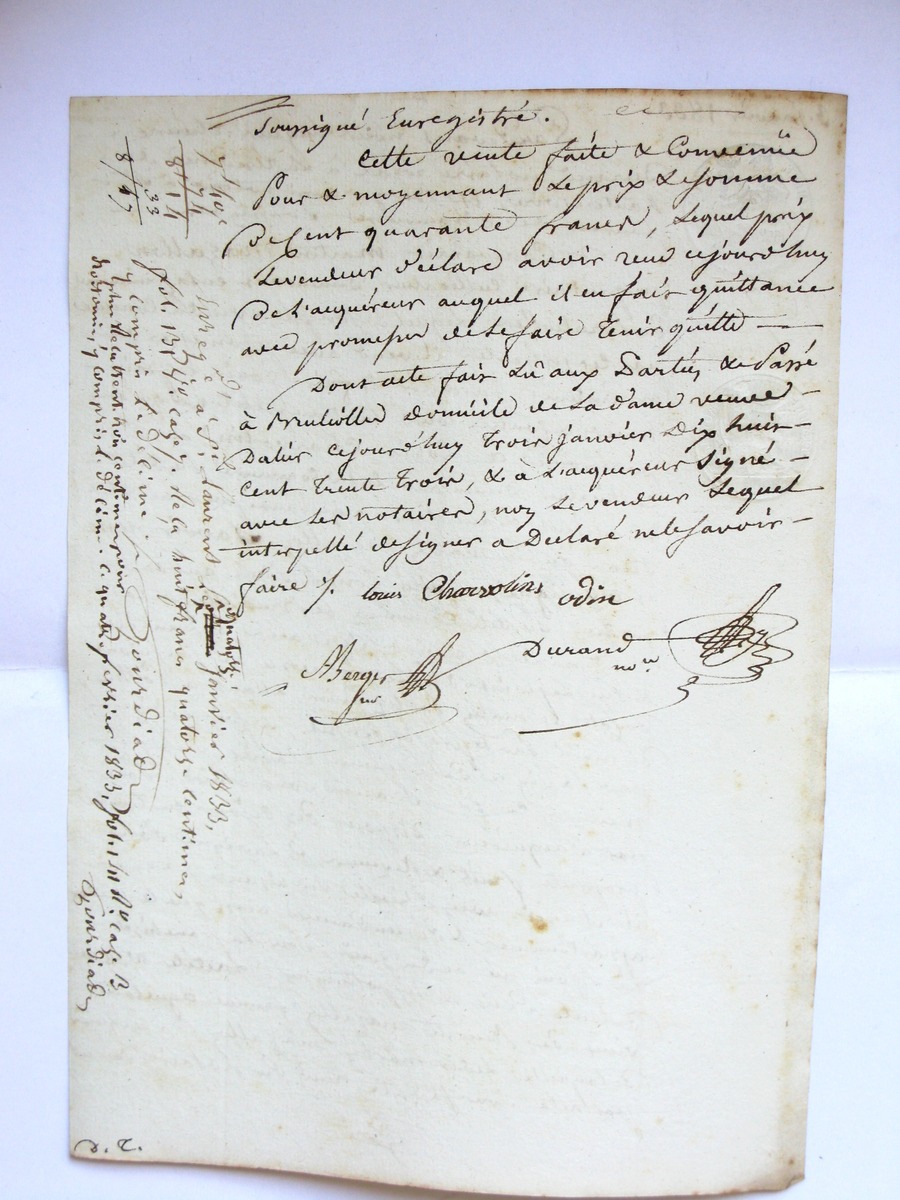 Soussigné Enregistré.
Cette vente faite & Convenüe
Pour & moyennant Le prix & somme
De Cent quarante francs, Lequel prix
Le vendeur déclare avoir reçu cejourd'huy
De L'acquéreur auquel il en fait quittance
avec promesse de Le faire tenir quitte —
Dont acte fait Lû aux Parties & Passé
à Brulliolles domicile de La dame veuve —
Dalis cejourd'huy trois janvier Dix huit —
Cent trente trois, & à L'acquéreur Signé —
avec Les notaires, non Le vendeur Lequel
interpellé de signer a Déclaré ne le savoir —
faire /.
Louis Charvolins
odin
Berger
nre
Durand
nore
7 40
74
8 14
33
8/47
Enreg. à St Laurent le quatorze janvier 1833,
fol. 131 Vo. case 7. Reçu huit francs quatorze centimes,
y compris le décime.
Gourdiad
plus Reçu trente trois centimes pour
y compris le décime. Ce quatre février 1833, fol. Vo. case 3
Gourdiad